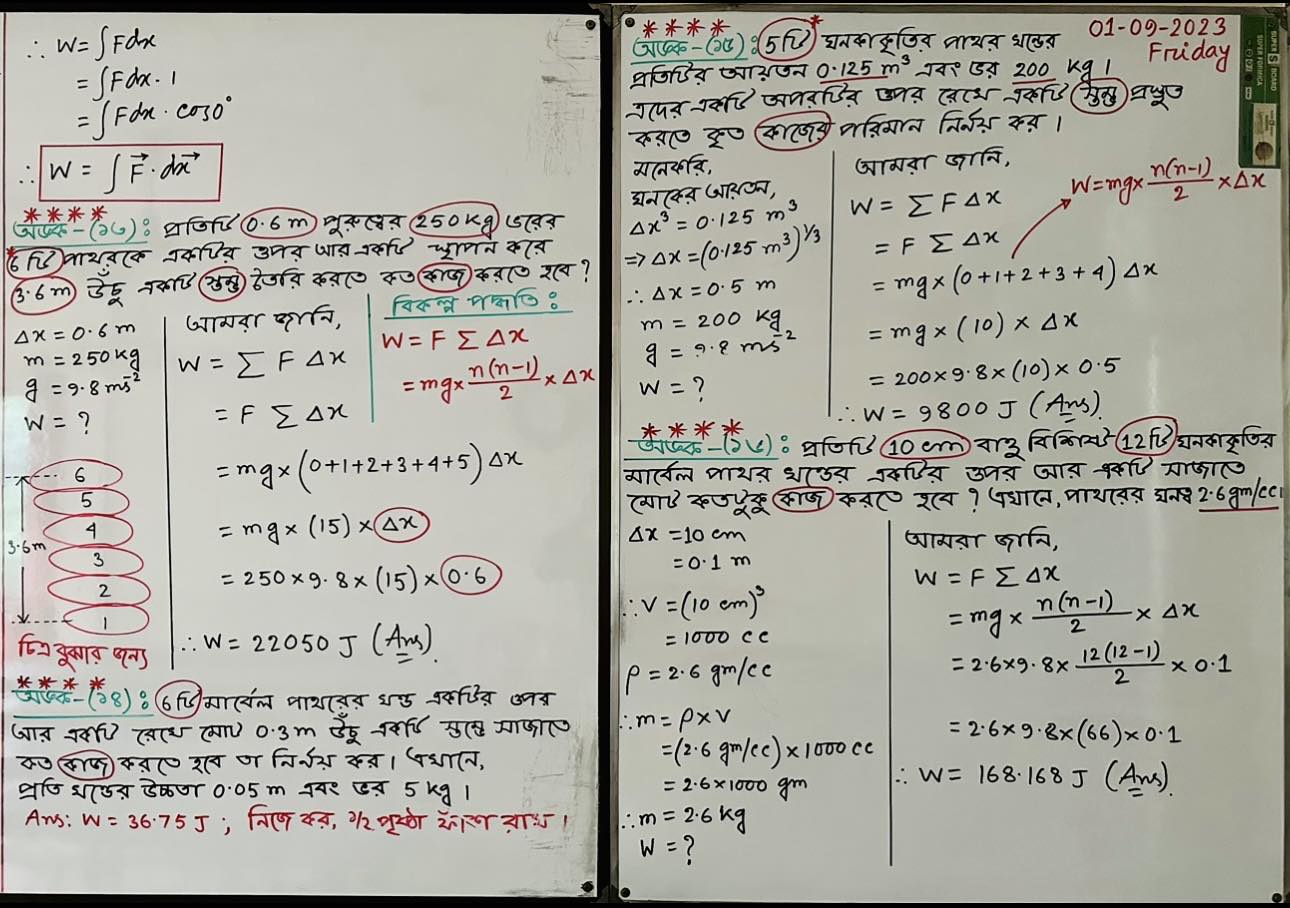 ∴ W = ∫ F dx
= ∫ F dx · 1
= ∫ F dx · cos0°
∴ W = ∫ F⃗ · dx⃗
****
অংক-(১৩) : প্রতিটি 0.6 m পুরুত্বের 250 kg ভরের
6 টি পাথরকে একটির ওপর আর একটি স্থাপন করে
3.6 m উঁচু একটি স্তম্ভ তৈরি করতে কত কাজ করতে হবে ?
Δx = 0.6 m
m = 250 kg
g = 9.8 ms⁻²
W = ?
6
5
4
3
2
1
3.6 m
চিত্র বুঝার জন্য
আমরা জানি,
W = ∑ F Δx
= F ∑ Δx
= mg × (0+1+2+3+4+5) Δx
= mg × (15) × Δx
= 250 × 9.8 × (15) × 0.6
∴ W = 22050 J (Ans)
বিকল্প পদ্ধতি :
W = F ∑ Δx
= mg × n(n-1)/2 × Δx
****
অংক-(১৪) : 6 টি মার্বেল পাথরের খন্ড একটির ওপর
আর একটি রেখে মোট 0.3 m উঁচু একটি স্তম্ভে সাজাতে
কত কাজ করতে হবে তা নির্নয় কর। এখানে,
প্রতি খন্ডের উচ্চতা 0.05 m এবং ভর 5 kg ।
Ans: W = 36.75 J ; নিজে কর, ১/২ পৃষ্ঠা ফাঁকা রাখ।
01-09-2023
Friday
SUPER S BOARD
SUPER FORMICA
****
অংক-(১৫) : 5 টি* ঘনকাকৃতির পাথর খন্ডের
প্রতিটির আয়তন 0.125 m³ এবং ভর 200 kg ।
এদের একটি অপরটির ওপর রেখে একটি স্তম্ভ প্রস্তুত
করতে কৃত কাজের পরিমান নির্নয় কর ।
মনেকরি,
ঘনকের আয়তন,
Δx³ = 0.125 m³
⇒ Δx = (0.125 m³)^1/3
∴ Δx = 0.5 m
m = 200 kg
g = 9.8 ms⁻²
W = ?
আমরা জানি,
W = ∑ F Δx
= F ∑ Δx
W = mg × n(n-1)/2 × Δx
= mg × (0+1+2+3+4) Δx
= mg × (10) × Δx
= 200 × 9.8 × (10) × 0.5
∴ W = 9800 J (Ans)
****
অংক-(১৬) : প্রতিটি 10 cm বাহু বিশিষ্ট 12 টি ঘনকাকৃতির
মার্বেল পাথর খন্ডের একটির ওপর আর একটি সাজাতে
মোট কতটুকু কাজ করতে হবে ? এখানে, পাথরের ঘনত্ব 2.6 gm/cc।
Δx = 10 cm
= 0.1 m
∴ V = (10 cm)³
= 1000 cc
ρ = 2.6 gm/cc
∴ m = ρ × V
= (2.6 gm/cc) × 1000 cc
= 2.6 × 1000 gm
∴ m = 2.6 kg
W = ?
আমরা জানি,
W = F ∑ Δx
= mg × n(n-1)/2 × Δx
= 2.6 × 9.8 × 12(12-1)/2 × 0.1
= 2.6 × 9.8 × (66) × 0.1
∴ W = 168.168 J (Ans)